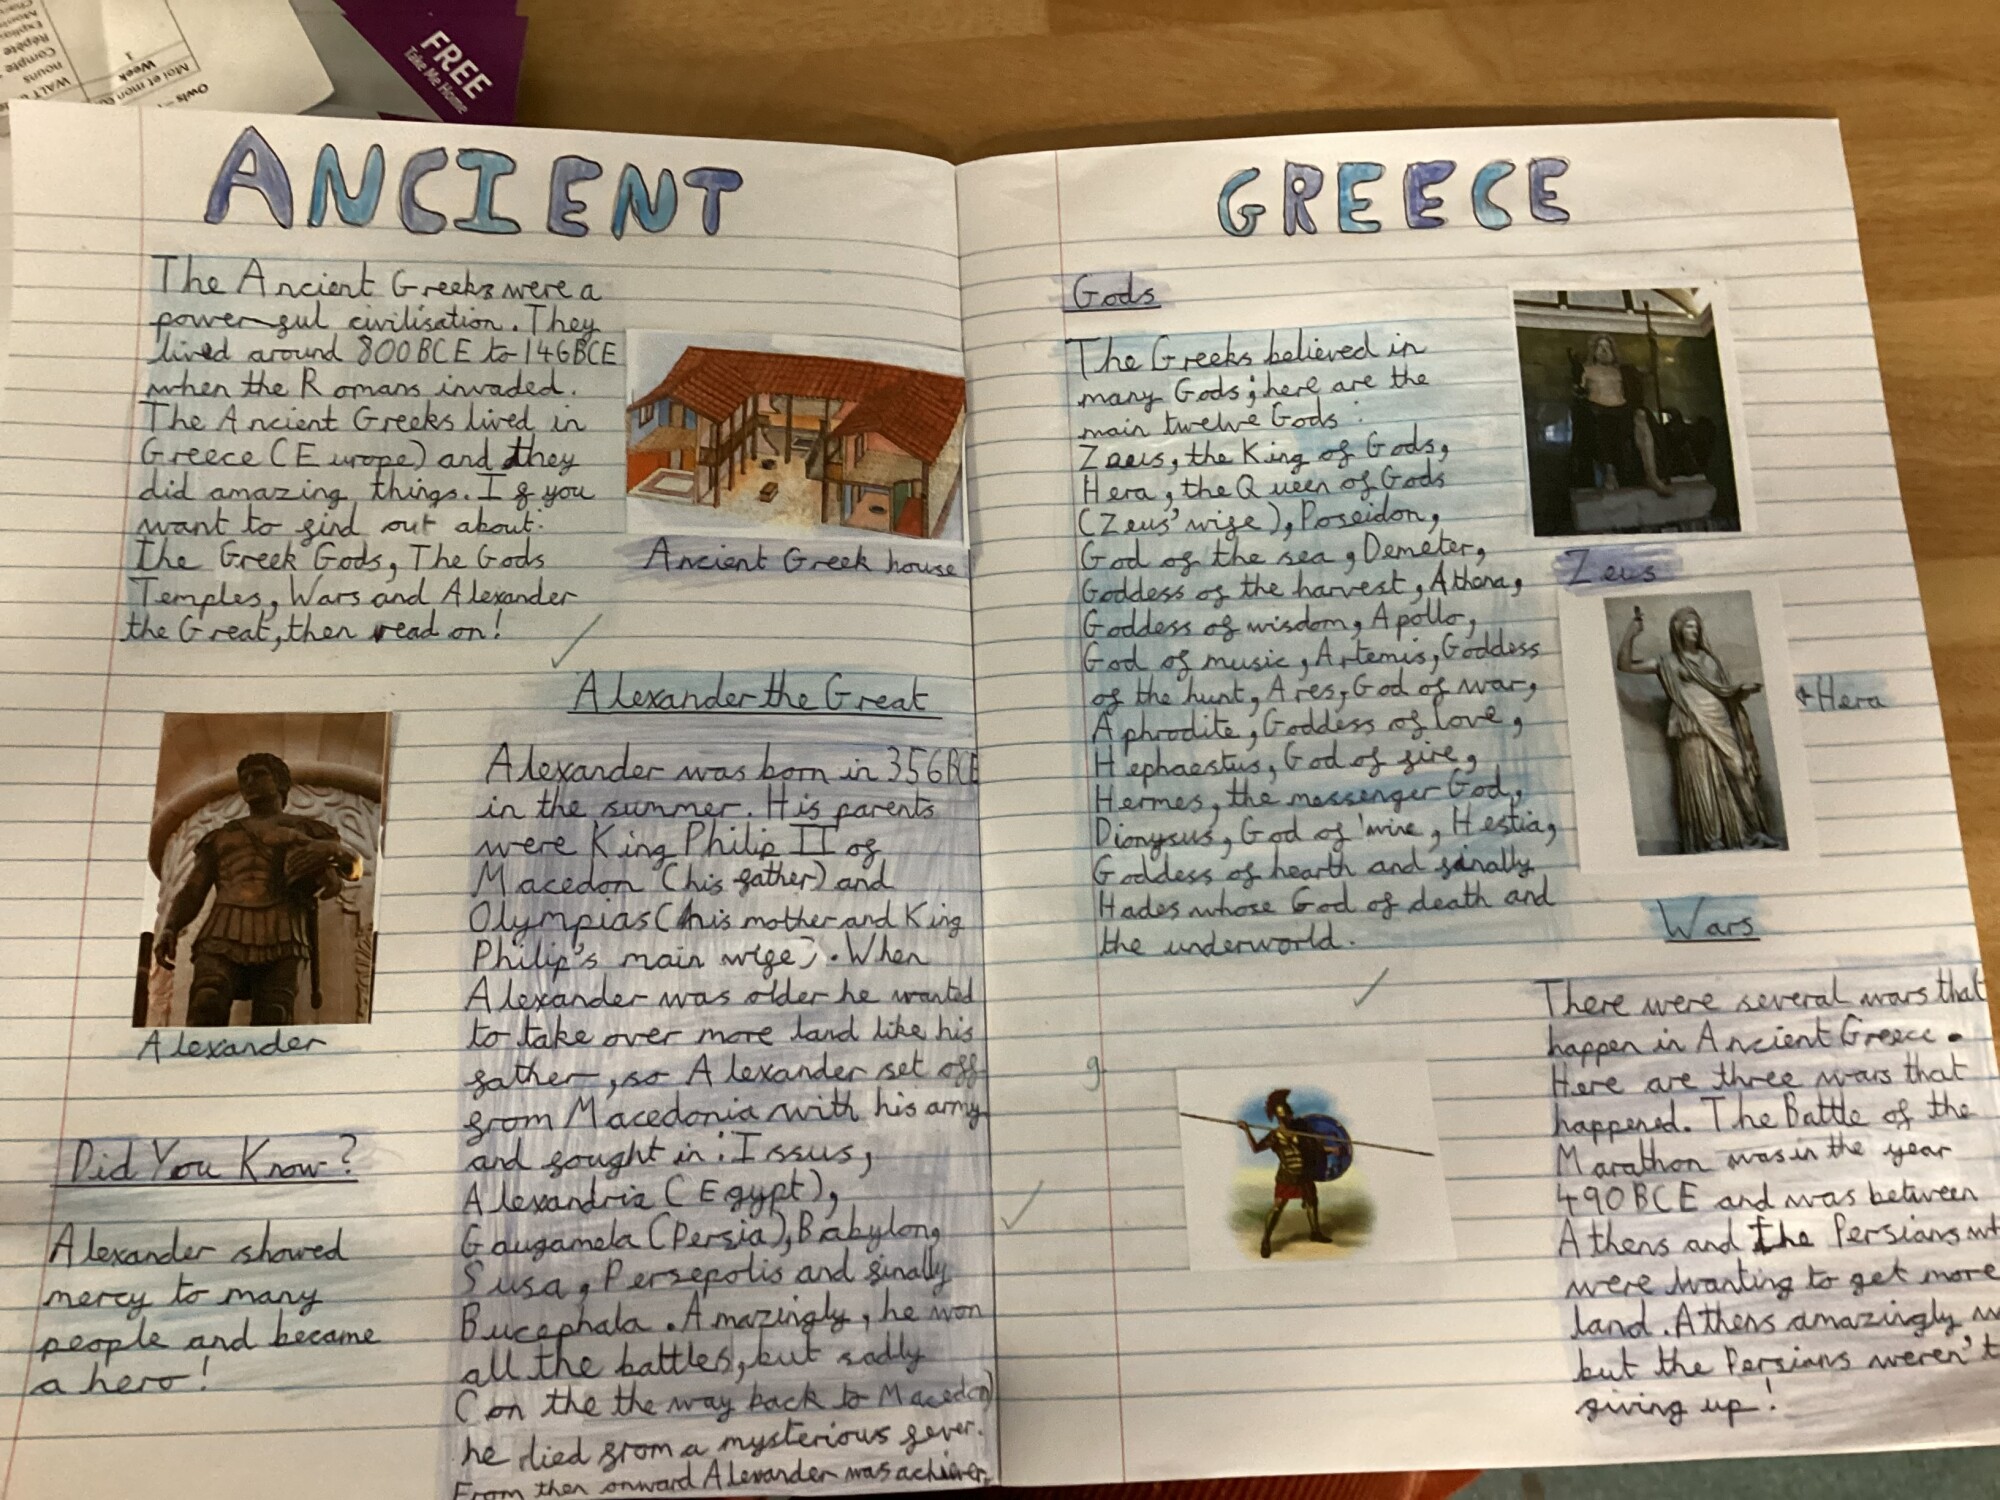 FREE
Take Me Home
Week
1
ANCIENT
The Ancient Greeks were a
powerful civilisation. They
lived around 800BCE to 146BCE
when the Romans invaded.
The Ancient Greeks lived in
Greece (Europe) and they
did amazing things. If you
want to find out about:
The Greek Gods, The Gods
Temples, Wars and Alexander
the Great, then read on!
Ancient Greek house
Alexander the Great
Alexander was born in 356BCE
in the summer. His parents
were King Philip II of
Macedon (his father) and
Olympias (his mother and King
Philip's main wife). When
Alexander was older he wanted
to take over more land like his
father, so Alexander set off
from Macedonia with his army
and fought in: Issus,
Alexandria (Egypt),
Gaugamela (Persia), Babylon,
Susa, Persepolis and finally
Bucephala. Amazingly, he won
all the battles, but sadly
(on the the way back to Macedon)
he died from a mysterious fever.
From then onward Alexander was
Alexander
Did You Know?
Alexander showed
mercy to many
people and became
a hero!
GREECE
Gods
The Greeks believed in
many Gods; here are the
main twelve Gods:
Zeus, the King of Gods,
Hera, the Queen of Gods
(Zeus' wife), Poseidon,
God of the sea, Demeter,
Goddess of the harvest, Athena,
Goddess of wisdom, Apollo,
God of music, Artemis, Goddess
of the hunt, Ares, God of war,
Aphrodite, Goddess of love,
Hephaestus, God of fire,
Hermes, the messenger God,
Dionysus, God of wine, Hestia,
Goddess of hearth and finally
Hades whose God of death and
the underworld.
Zeus
Hera
Wars
There were several wars that
happen in Ancient Greece.
Here are three wars that
happened. The Battle of the
Marathon was in the year
490BCE and was between
Athens and the Persians
were wanting to get more
land. Athens amazingly
but the Persians weren't
giving up!